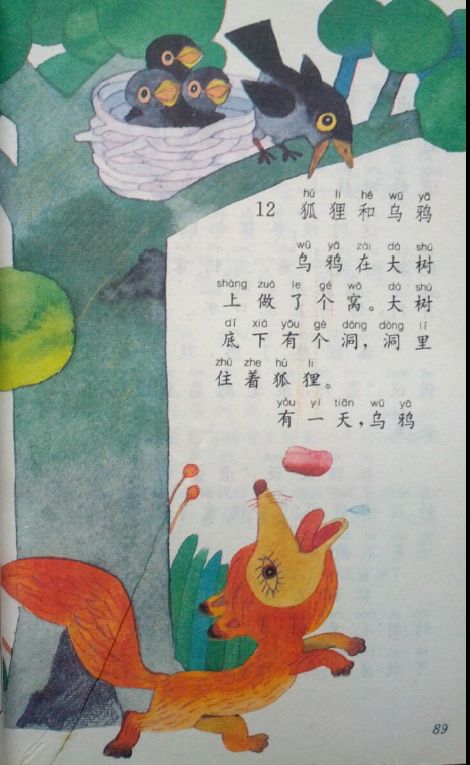 hú li hé wū yā
12 狐狸和乌鸦
wū yā zài dà shù
乌鸦在大树
shàng zuò le gè wō dà shù
上做了个窝。大树
dǐ xià yǒu gè dòng dòng lǐ
底下有个洞,洞里
zhù zhe hú li
住着狐狸。
yǒu yì tiān wū yā
有一天,乌鸦
89